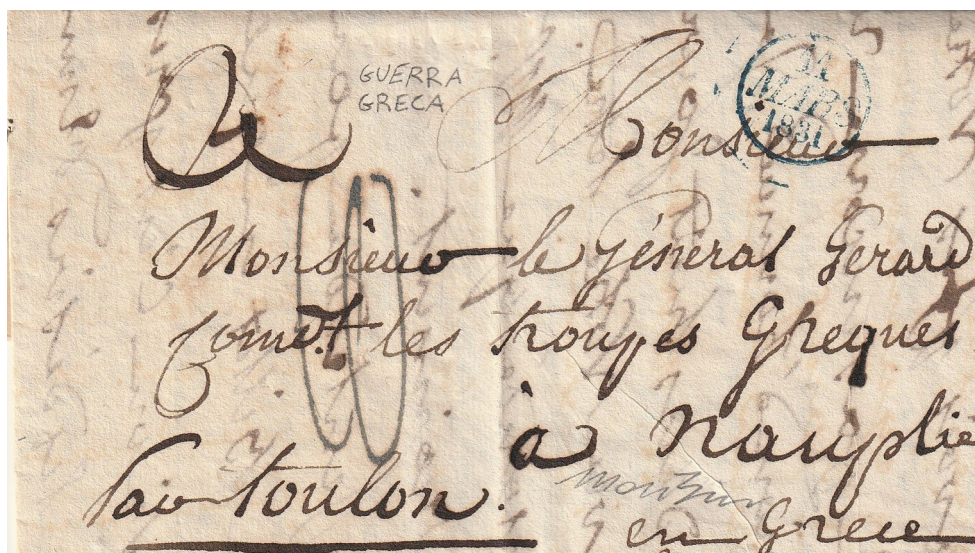 GUERRA
GRECA
11
MARS
1831
A Monsieur
Monsieur le Général Gerard
Comdt les troupes Greques
à Nauplie
Par Toulon.
en Grece